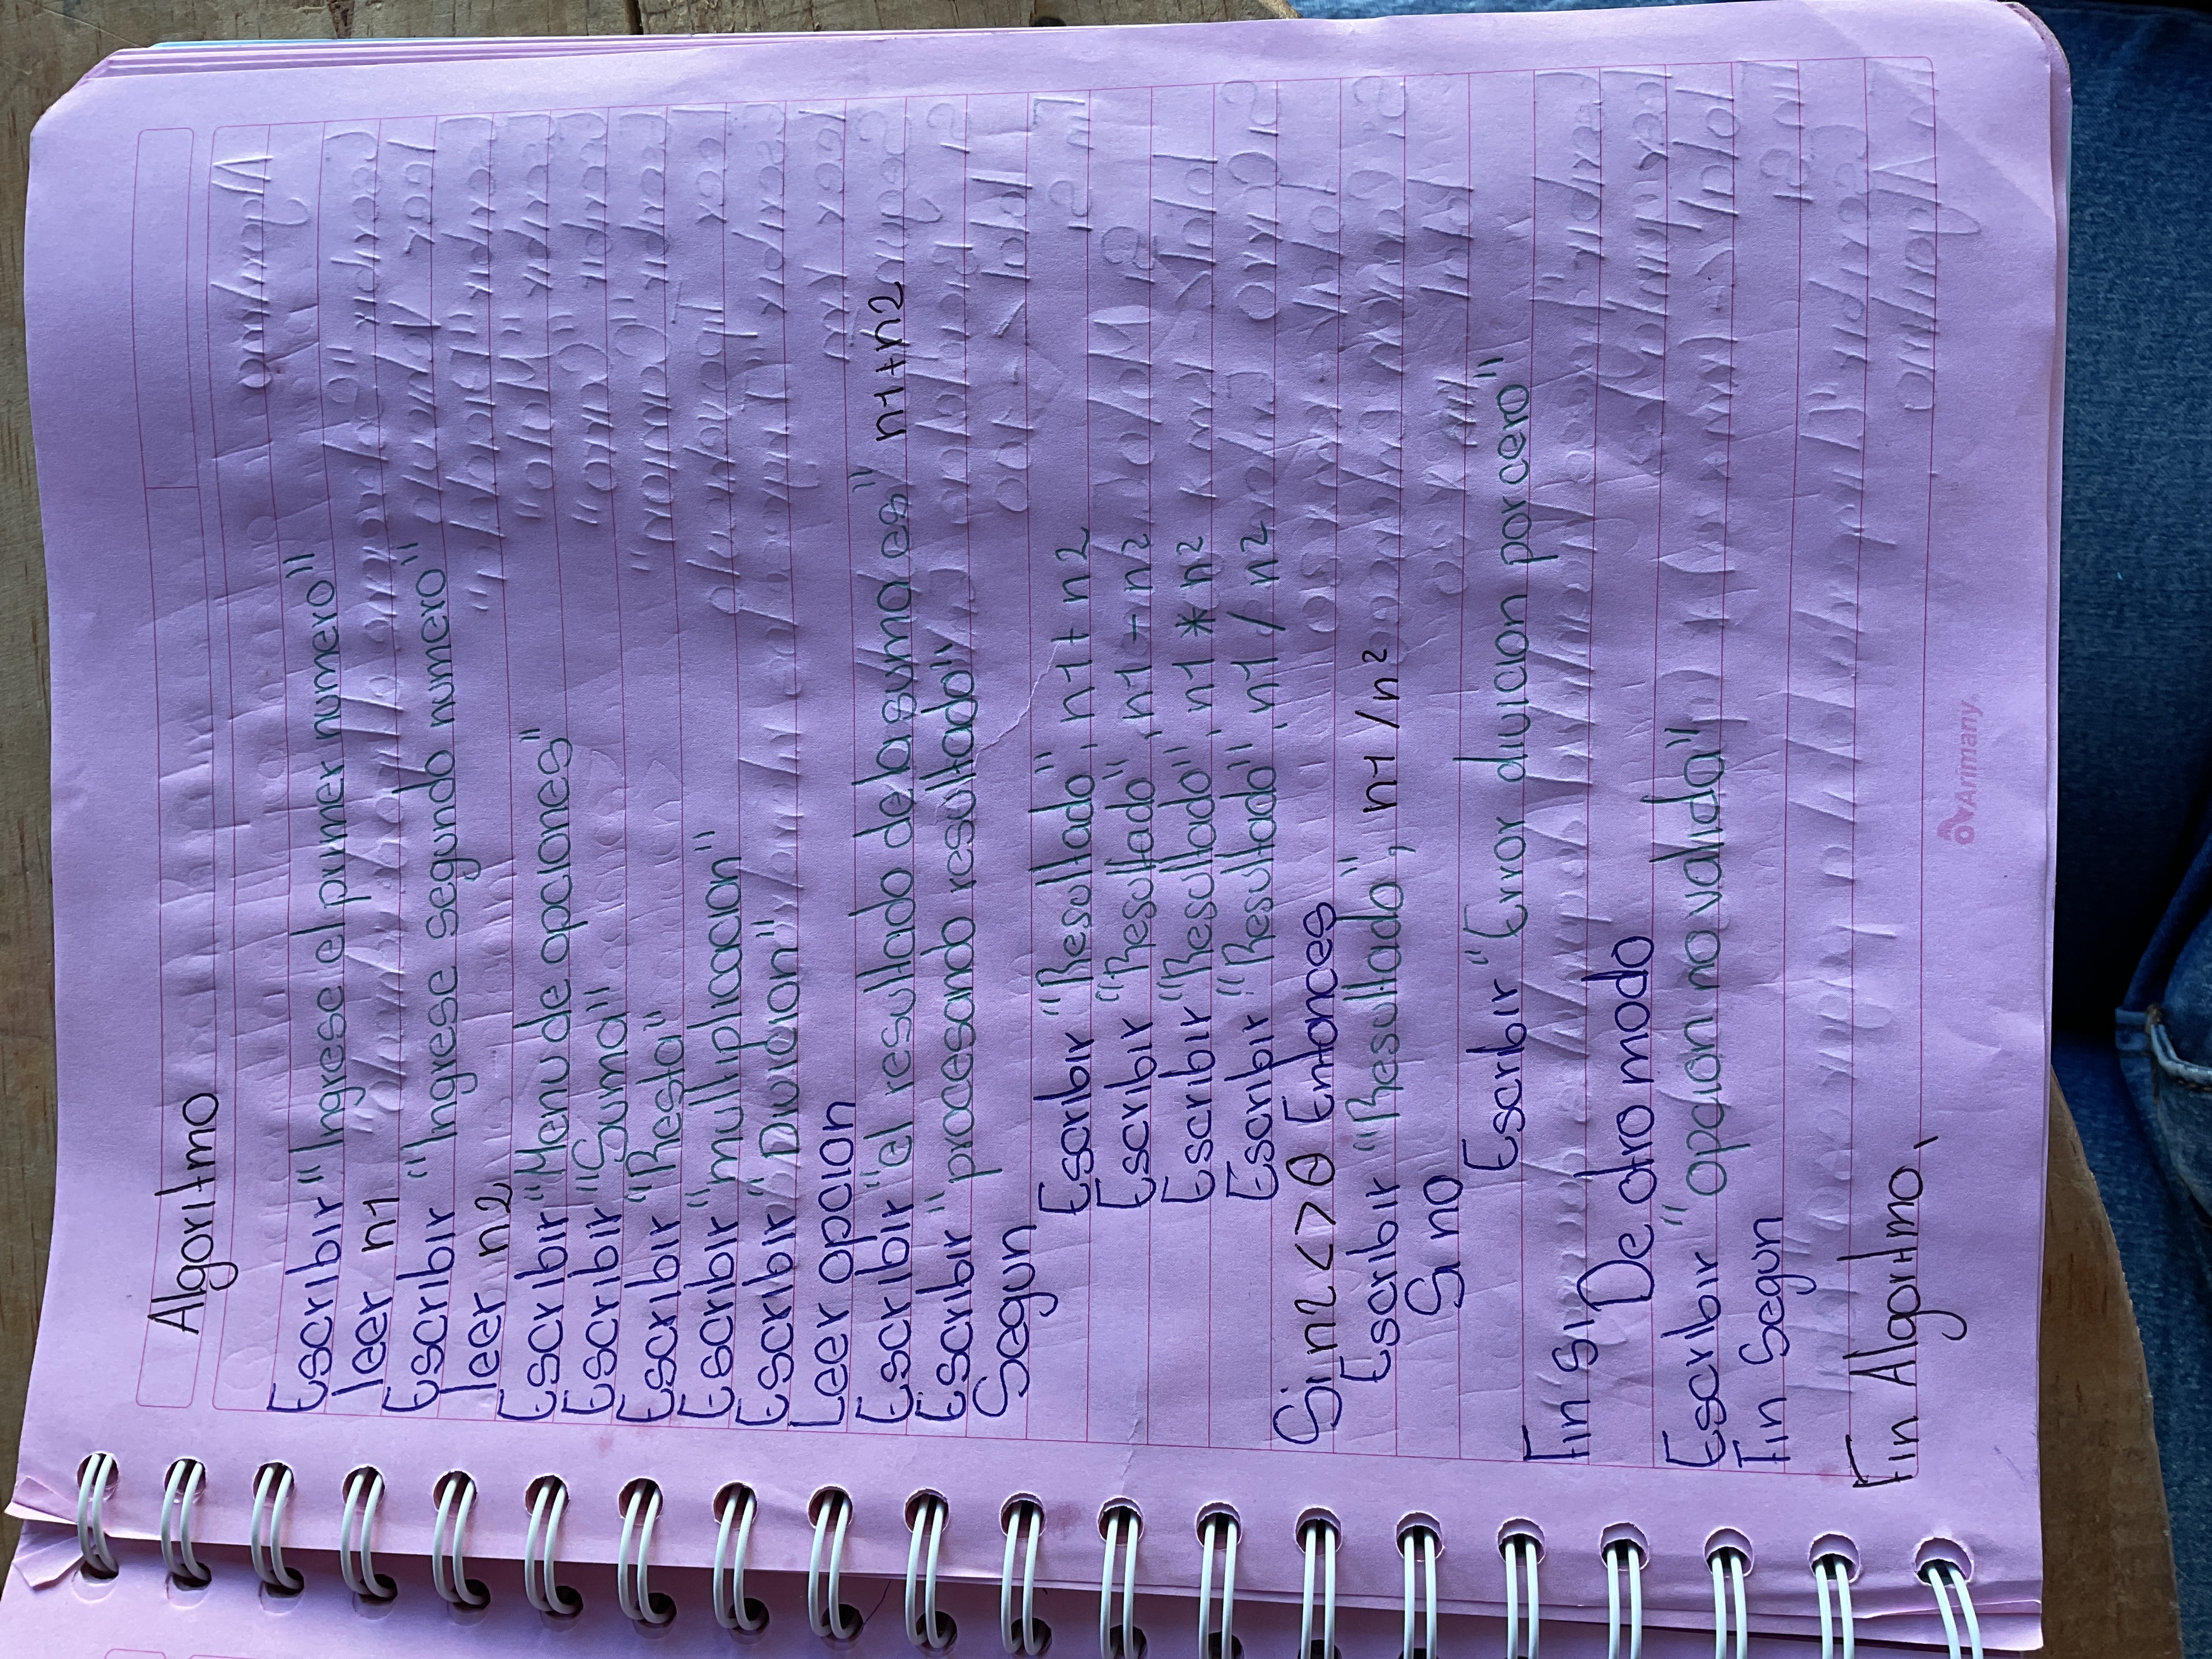 Algoritmo
Escribir "Ingrese el primer numero"
leer n1
Escribir "Ingrese segundo numero"
leer n2
Escribir "Menu de opciones"
Escribir "Suma"
Escribir "Resta"
Escribir "multiplicacion"
Escribir "Divicion"
Leer opcion
Escribir "el resultado de la suma es" n1+n2
Escribir "procesando resultado"
Segun
Escribir "Resultado", n1+n2
Escribir "Resultado", n1-n2
Escribir "Resultado", n1*n2
Escribir "Resultado", n1/n2
Si n2 <> 0 Entonces
Escribir "Resultado", n1/n2
Si no
Escribir "Error divicion por cero"
Fin Si De otro modo
Escribir "opcion no valida"
Fin Segun
Fin Algoritmo,
Armany